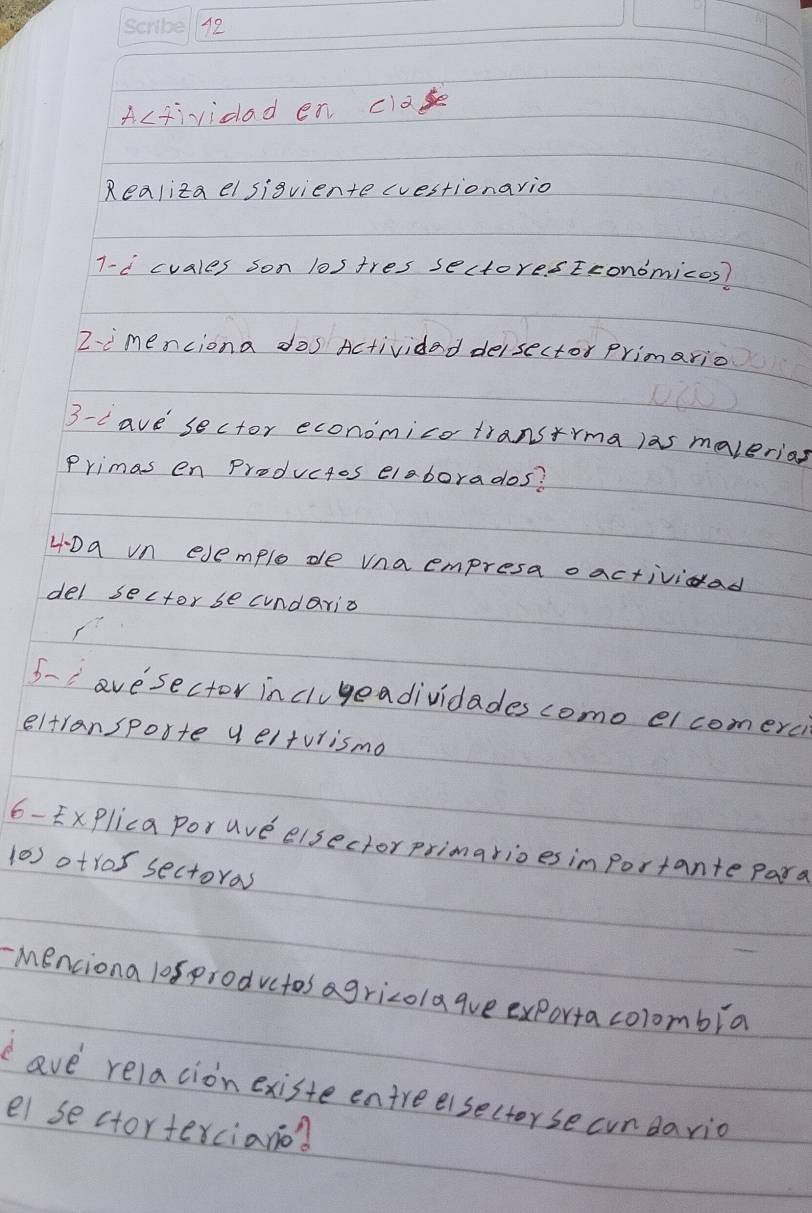 Scribe 12
Actividad en clase
Realiza el siguiente cuestionario
1-¿ cuales son los tres sectores Económicos?
2-¿ menciona dos Actividad del sector primario
3-¿ Qué sector económico transfrma las materias
primas en Productos elaborados?
4-Da un ejemplo de una empresa o actividad
del sector secundario
5-¿ Qué sector incluye adividades como el comerci
el transporte y el turismo
6-Explica por uvé el sector primario es importante para
los otros sectoras
-Menciona los productos agricola que exporta colombia
¿ Qué relación existe entre el sector secundario
el sector terciario?